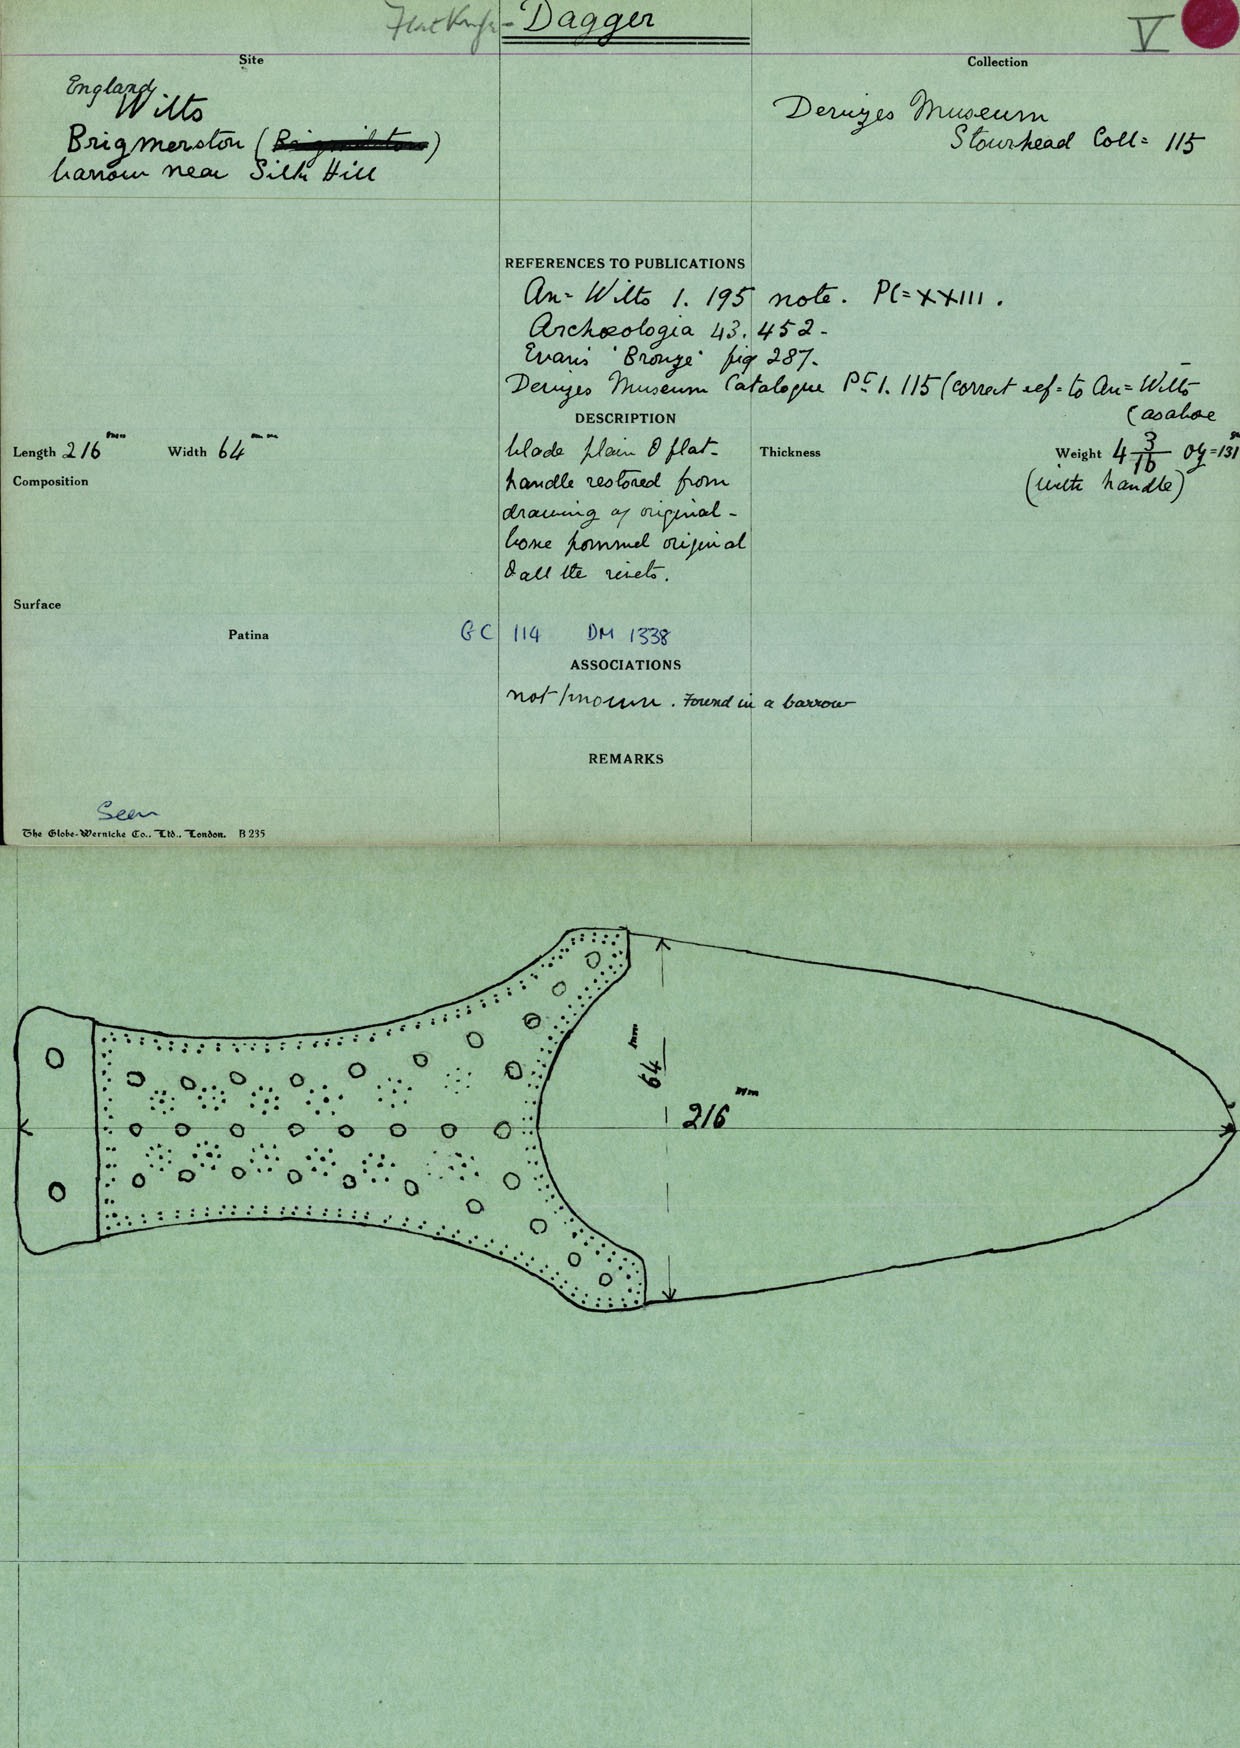 Flat Knife - Dagger
V
Site
Collection
England
Wilts
Brigmerston (Brigmilston)
barrow near Silk Hill
Devizes Museum
Stourhead Coll= 115
REFERENCES TO PUBLICATIONS
An= Wilts 1. 195 note. Pl= XXIII.
Archæologia 43. 452-
Evans 'Bronze' fig 287-
Devizes Museum Catalogue Pt 1. 115 (correct ref= to An= Wilts
(as above
DESCRIPTION
Length 216 mm
Width 64 mm
Thickness
Weight 4 3/16 oz = 131
(with handle)
Composition
blade plain & flat-
handle restored from
drawing of original -
bone pommel original
& all the rivets.
Surface
Patina
GC 114 DM 1338
ASSOCIATIONS
not known. Found in a barrow
REMARKS
Seen
The Globe-Wernicke Co., Ltd., London. B 235
64 mm
216 mm